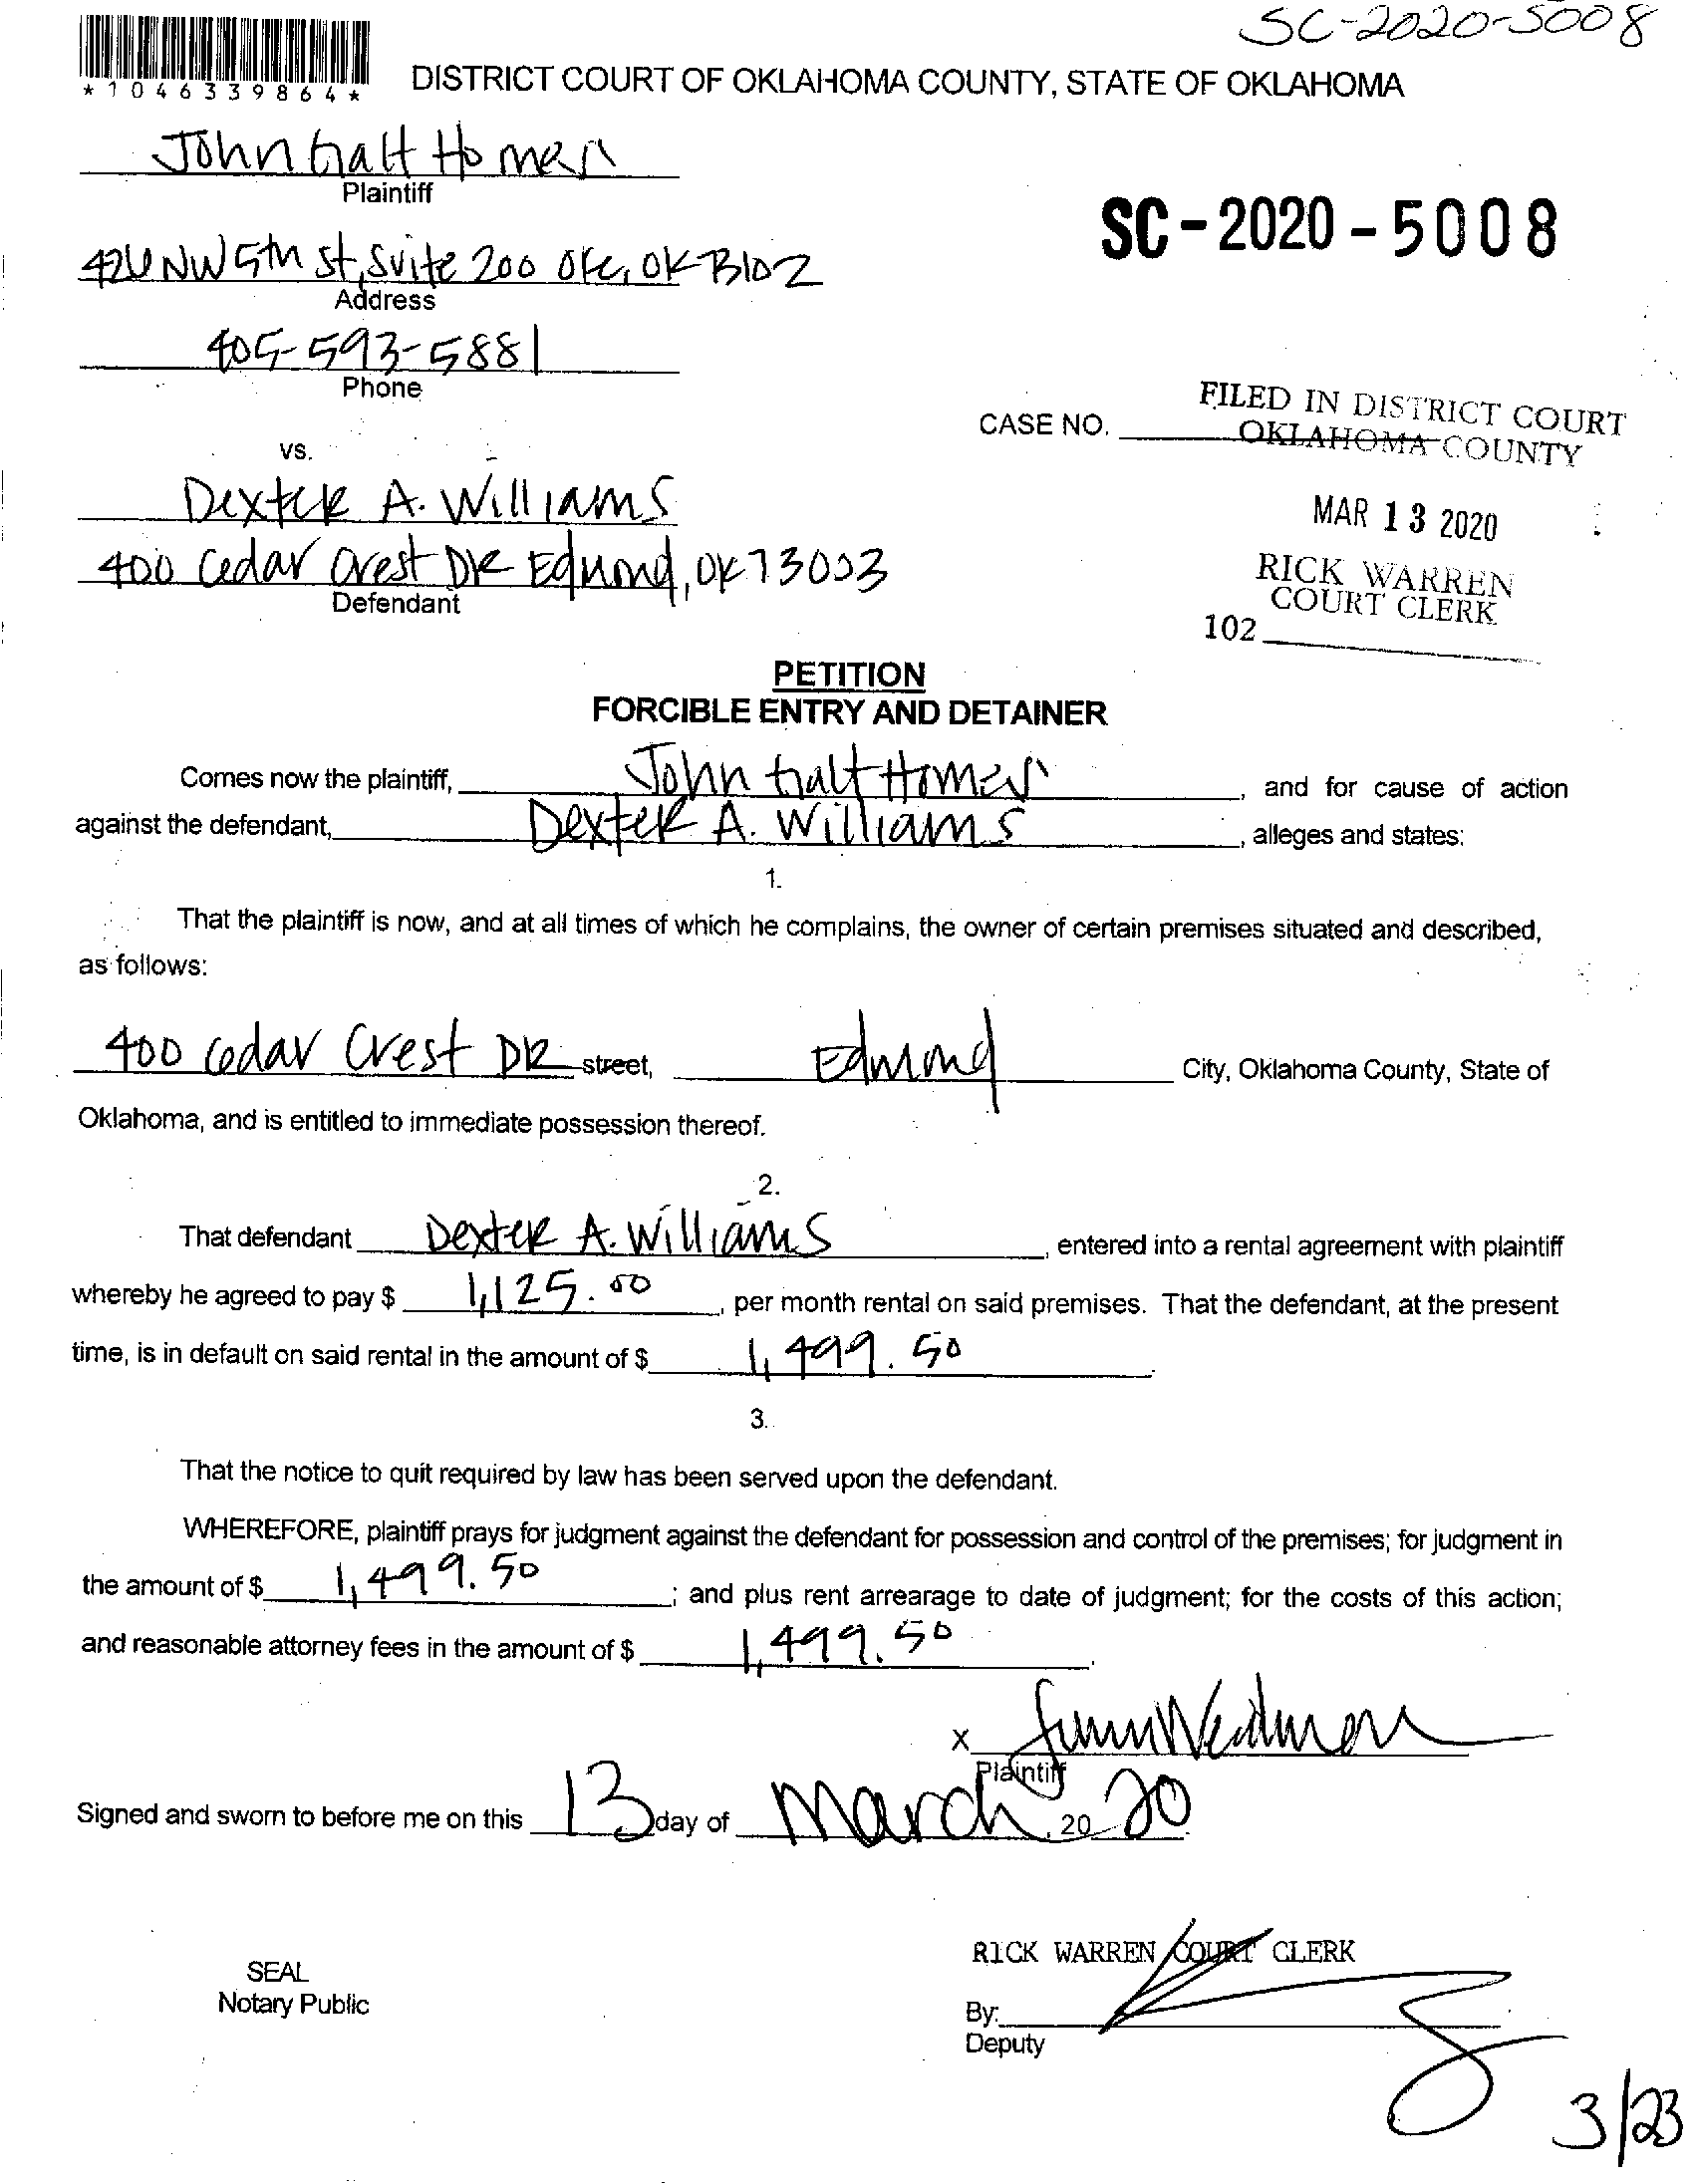 SC-2020-5008
*1046339864*
DISTRICT COURT OF OKLAHOMA COUNTY, STATE OF OKLAHOMA
John Galt Homes
Plaintiff
SC-2020-5008
NW 5th St, Suite 200 OKC, OK 73102
Address
405-593-5881
Phone
FILED IN DISTRICT COURT
CASE NO. OKLAHOMA COUNTY
vs.
Dexter A. Williams
MAR 13 2020
400 Cedar Crest DR Edmond, OK 73003
RICK WARREN
Defendant
COURT CLERK
102
PETITION
FORCIBLE ENTRY AND DETAINER
Comes now the plaintiff, John Galt Homes, and for cause of action
against the defendant, Dexter A. Williams, alleges and states:
1.
That the plaintiff is now, and at all times of which he complains, the owner of certain premises situated and described,
as follows:
400 Cedar Crest DR street, Edmond City, Oklahoma County, State of
Oklahoma, and is entitled to immediate possession thereof.
2.
That defendant Dexter A. Williams, entered into a rental agreement with plaintiff
whereby he agreed to pay $ 1,125.00, per month rental on said premises. That the defendant, at the present
time, is in default on said rental in the amount of $ 1,499.50.
3.
That the notice to quit required by law has been served upon the defendant.
WHEREFORE, plaintiff prays for judgment against the defendant for possession and control of the premises; for judgment in
the amount of $ 1,499.50; and plus rent arrearage to date of judgment; for the costs of this action;
and reasonable attorney fees in the amount of $ 1,499.50.
X
Plaintiff
Signed and sworn to before me on this 13 day of March, 20 20
RICK WARREN COURT CLERK
SEAL
Notary Public
By:
Deputy
3/23